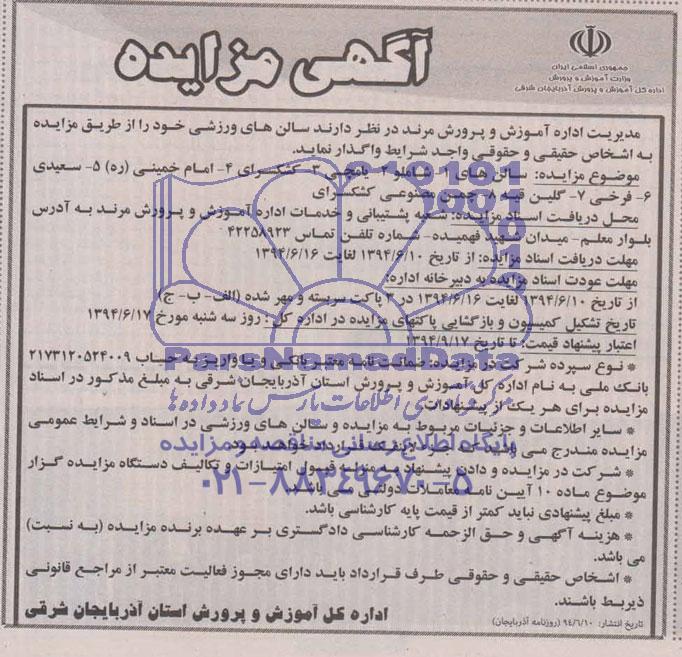 جمهوری اسلامی ایران
وزارت آموزش و پرورش
اداره کل آموزش و پرورش آذربایجان شرقی
آگهی مزایده
مدیریت اداره آموزش و پرورش مرند در نظر دارند سالن های ورزشی خود را از طریق مزایده
به اشخاص حقیقی و حقوقی واجد شرایط واگذار نماید.
موضوع مزایده: سالن های ۱- شاملو ۲- یامچی ۳- کشکسرای ۴- امام خمینی (ره) ۵- سعیدی
۶- فرخی ۷- گلین قیه ۸- چمن مصنوعی کشکسرای
محل دریافت اسناد مزایده: شعبه پشتیبانی و خدمات اداره آموزش و پرورش مرند به آدرس
بلوار معلم- میدان شهید فهمیده- شماره تلفن تماس ۴۲۲۵۸۹۲۳
مهلت دریافت اسناد مزایده: از تاریخ ۱۳۹۴/۶/۱۰ لغایت ۱۳۹۴/۶/۱۶
مهلت عودت اسناد مزایده به دبیرخانه اداره:
از تاریخ ۱۳۹۴/۶/۱۰ لغایت ۱۳۹۴/۶/۱۶ در ۳ پاکت سربسته و مهر شده (الف- ب- ج)
تاریخ تشکیل کمیسیون و بازگشایی پاکتهای مزایده در اداره کل: روز سه شنبه مورخ ۱۳۹۴/۶/۱۷
اعتبار پیشنهاد قیمت: تا تاریخ ۱۳۹۴/۹/۱۷
ParsNamadData
* نوع سپرده شرکت در مزایده: ضمانت نامه معتبر بانکی و یا واریز به حساب ۲۱۷۳۱۲۰۵۲۴۰۰۹
بانک ملی به نام اداره کل آموزش و پرورش استان آذربایجان شرقی به مبلغ مذکور در اسناد
مزایده برای هر یک از پیشنهادات
مرکز فرآوری اطلاعات پارس نماد داده ها
* سایر اطلاعات و جزئیات مربوط به مزایده و سالن های ورزشی در اسناد و شرایط عمومی
مزایده مندرج می
پایگاه اطلاع رسانی مناقصه و مزایده
* شرکت در مزایده و دادن پیشنهاد به منزله قبول امتیازات و تکالیف دستگاه مزایده گزار
موضوع ماده ۱۰ آیین نامه معاملات دولتی می باشد.
۰۲۱-۸۸۳۴۹۶۷۰-۵
* مبلغ پیشنهادی نباید کمتر از قیمت پایه کارشناسی باشد.
* هزینه آگهی و حق الزحمه کارشناسی دادگستری بر عهده برنده مزایده (به نسبت)
می باشد.
* اشخاص حقیقی و حقوقی طرف قرارداد باید دارای مجوز فعالیت معتبر از مراجع قانونی
ذیربط باشند.
اداره کل آموزش و پرورش استان آذربایجان شرقی
تاریخ انتشار: ۹۴/۶/۱۰ (روزنامه آذربایجان)